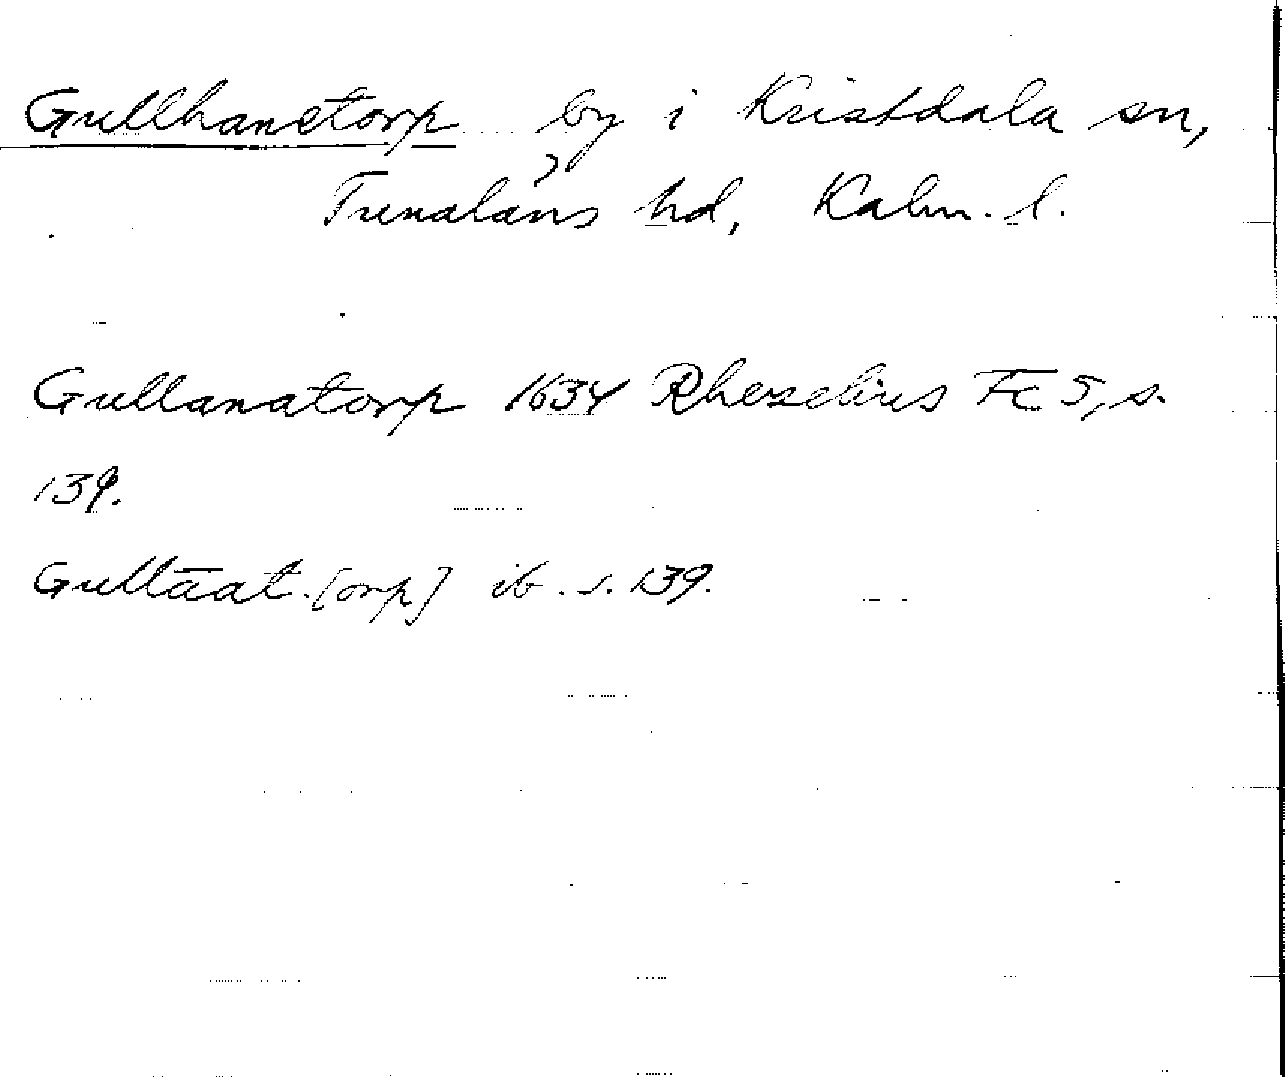 Gullhanetorp by i Kristdala sn,
Tunaläns hd, Kalm. l.
Gullanatorp 1634 Rhezelius Fc 5, s.
139.
Gullāat.[orp] ib. s. 139.